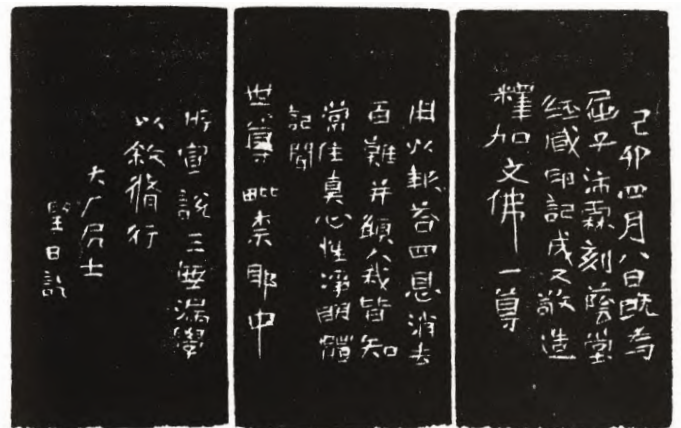 己卯四月八日既為
屈子沛霖刻蔭堂
經藏印記成又敬造
釋加文佛一尊
用以報答四恩消去
百難并願人我皆知
常住真心性淨明體
記聞
世尊毗柰耶中
所宣說三無漏學
以敘脩行
大厂居士
日記